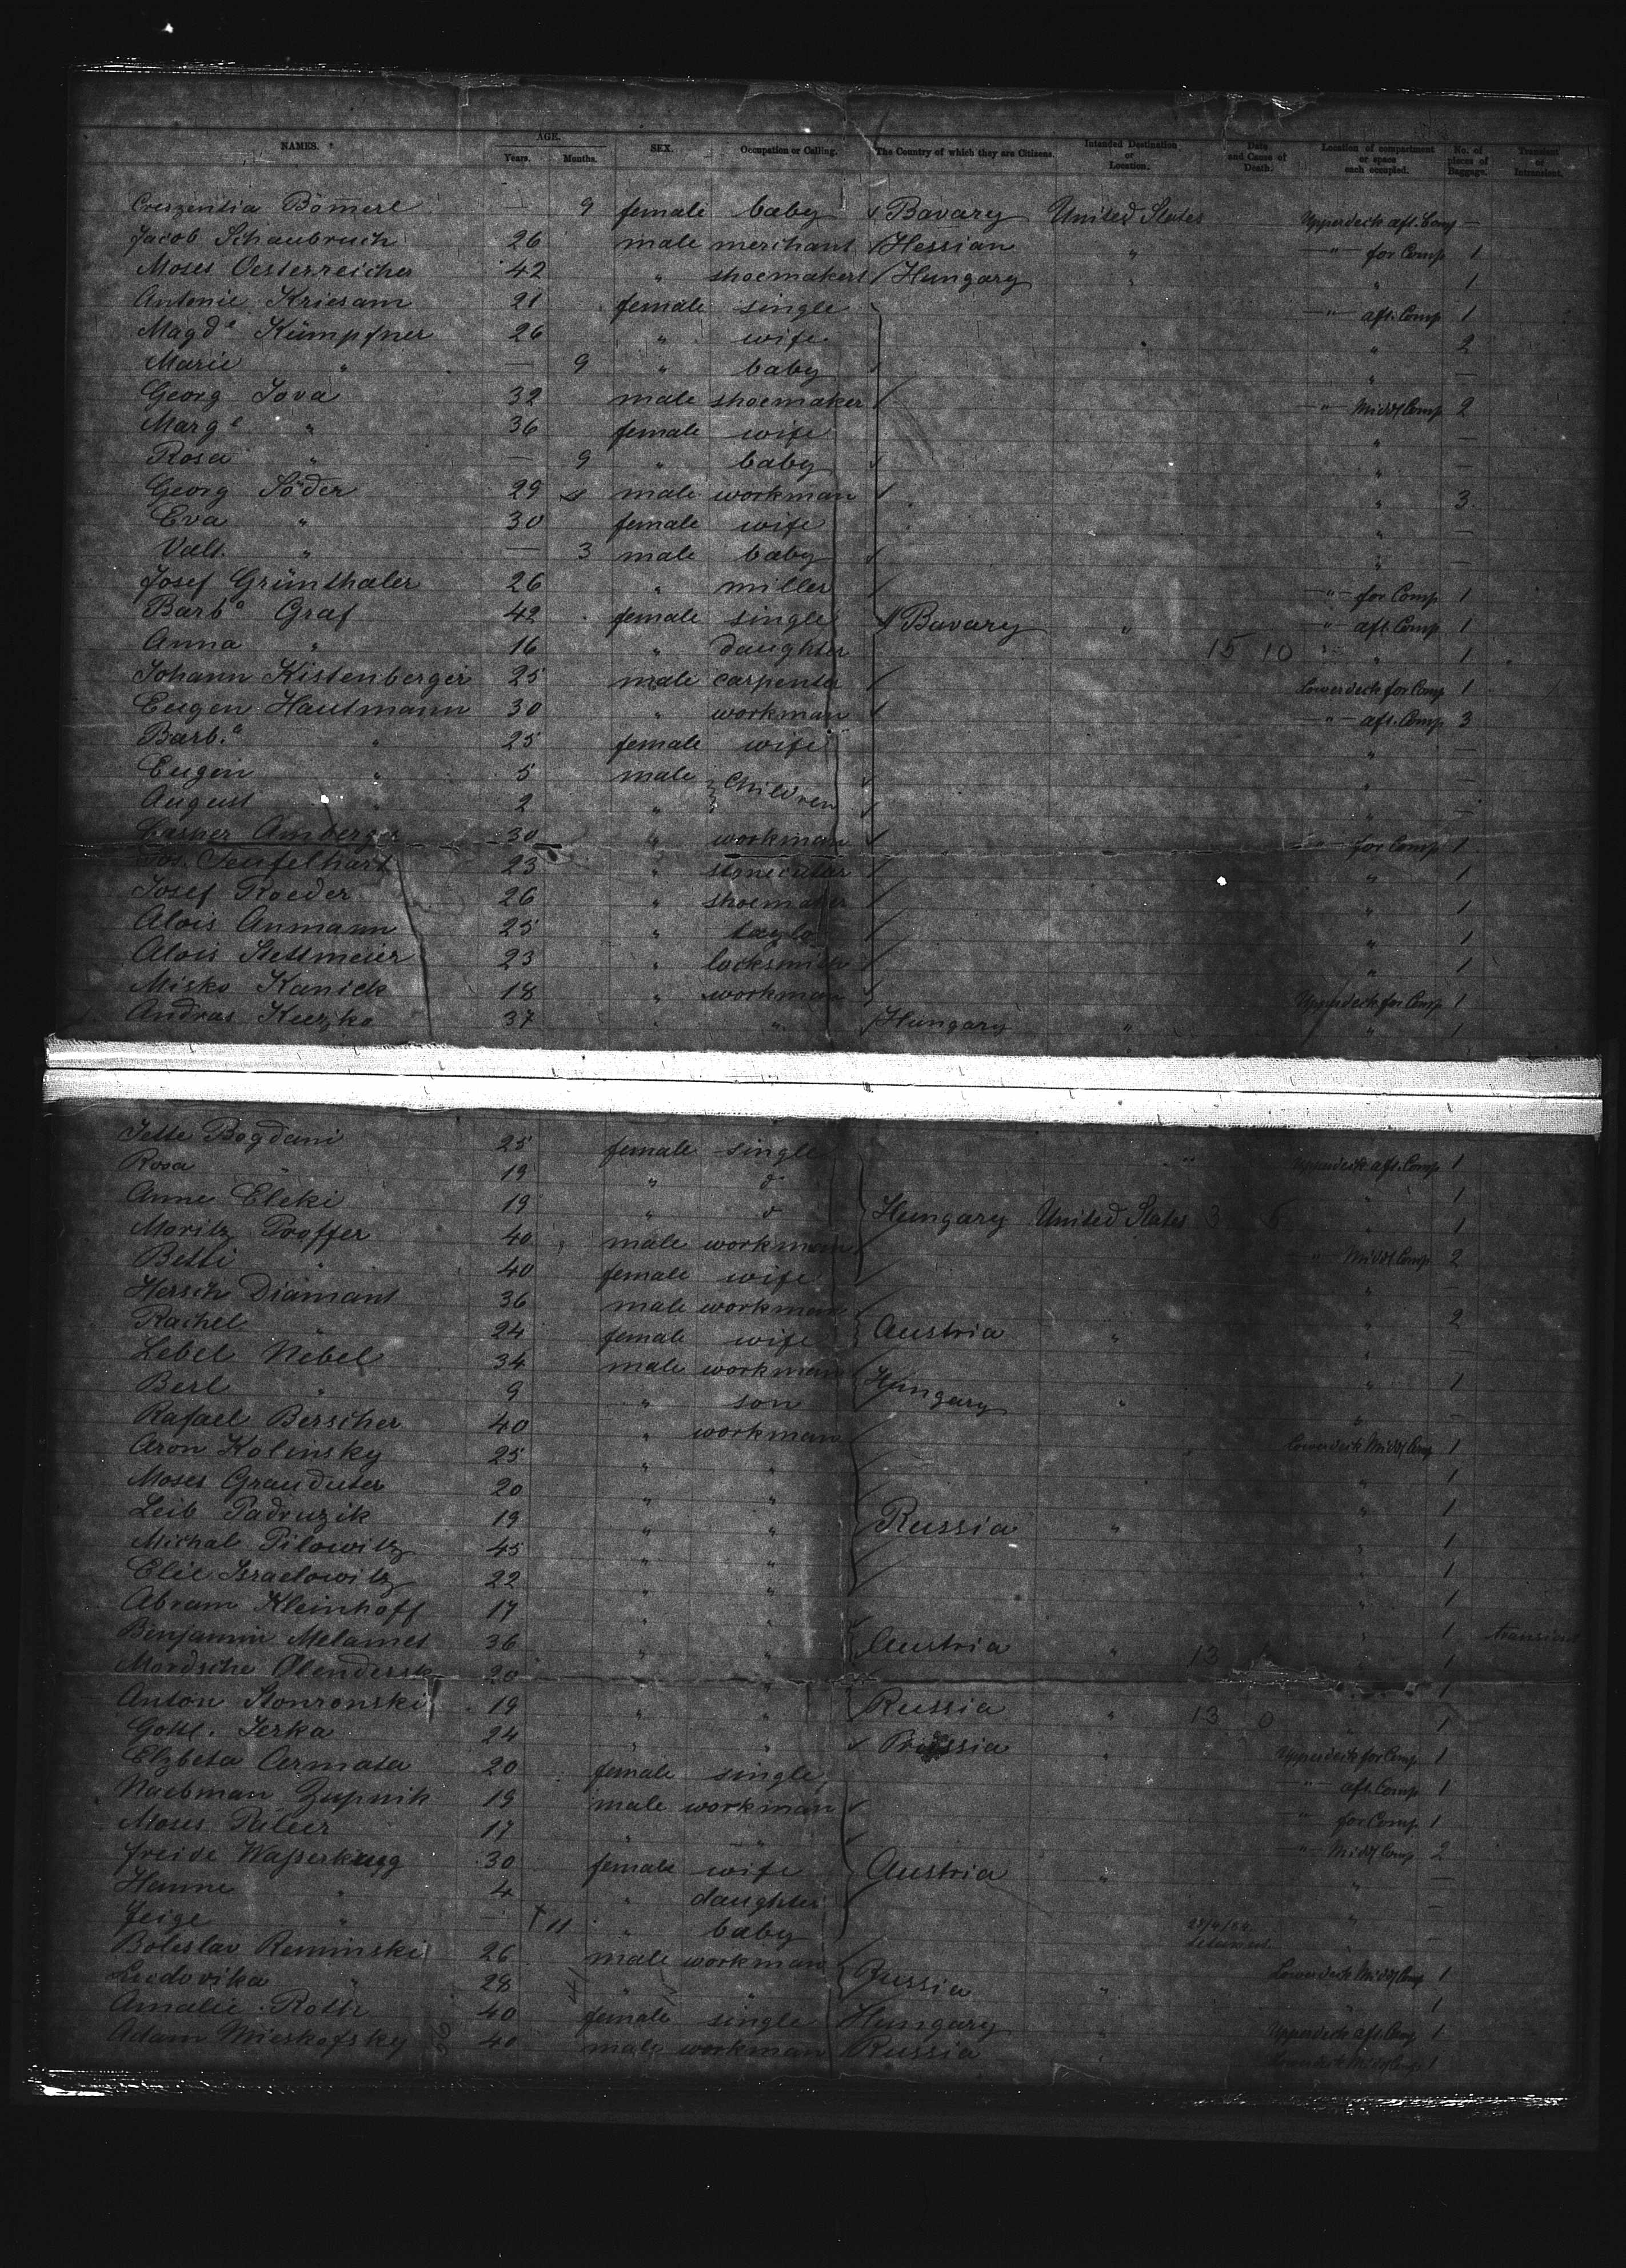 NAMES. AGE. Years. Months. SEX. Occupation or Calling. The Country of which they are Citizens. Intended Destination or Location. Date and Cause of Death. Location of compartment or space each occupied. No. of pieces of Baggage. Transient or Intransient.
Creszentia Bömerl — 9 female baby Bavary United States Upperdeck aft. Comp —
Jacob Schaubruch 26 male merchant Hessian " —"— for Comp 1
Moses Oesterreicher 42 " shoemaker Hungary " " 1
Antonie Kriesam 21 female single —"— aft. Comp 1
Magd.a Kümpfner 26 " wife " " 2
Marie " — 9 " baby " —
Georg Sova 32 male shoemaker —"— Middl Comp 2
Marg.e " 36 female wife " —
Rosa " — 9 " baby " —
Georg Söder 29 male workman " 3
Eva " 30 female wife " —
Valt. " — 3 male baby " —
Josef Grünthaler 26 " miller —"— for Comp 1
Barb.a Graf 42 female single Bavary " " aft. Comp 1
Anna " 16 " daughter 15 10 " 1
Johann Kistenberger 25 male carpenter Lowerdeck for Comp 1
Eugen Hautmann 30 " workman —"— aft. Comp 3
Barb.a " 25 female wife " —
Eugen " 5 male Children " —
August " 2 " " —
Casper Amberger 30 " workman " for Comp 1
Jos. Teufelhart 23 " stonecutter " 1
Josef Roeder 26 " shoemaker " 1
Alois Anmann 25 " taylor " 1
Alois Stettmeier 23 " locksmith " 1
Misko Kanick 18 " workman Upperdeck for Comp 1
Andras Keczko 37 " " Hungary " " 1
Jette Bogdani 25 female single " Upperdeck aft. Comp 1
Rosa " 19 " " 1
Anne Eleki 19 " Hungary United States 3 6 " 1
Moritz Proffer 40 male workman " Middl Comp 2
Betti " 40 female wife " —
Hersch Diamant 36 male workman " 2
Rachel " 24 female wife Austria " " —
Lebel Nebel 34 male workman Hungary " 1
Berl " 9 " son " " —
Rafael Berscher 40 " workman Lowerdeck Middl Comp 1
Aron Kolinsky 25 " " " 1
Moses Grauduter 20 " " " 1
Leib Padruzik 19 " " Russia " " 1
Michal Pilowitz 45 " " " 1
Elie Israelowitz 22 " " " 1
Abram Kleinhoff 17 " " " 1
Benjamin Melamet 36 " " Austria " 13 " 1
Mordsche Olendersk 20 " " 1
Anton Stonronski 19 " " Russia " 13 0 " 1
Gottl. Jerka 24 " " Prussia " Upperdeck for Comp 1
Elzbeta Cermata 20 female single —"— aft. Comp 1
Nachman Zupnik 19 male workman " for Comp 1
Moses Paleer 17 " " " Middl Comp 2
Freide Wasserkrugg 30 female wife Austria " " —
Hanne " 4 " daughter " —
Feige " — † 11 " baby " —
Boleslav Reminski 26 male workman Russia Lowerdeck Middl Comp 1
Ludovika " 28 " " " " 1
Amalie Roth 40 female single Hungary " Upperdeck aft. Comp 1
Adam Mieskofsky 40 male workman Russia " Lowerdeck Middl Comp 1